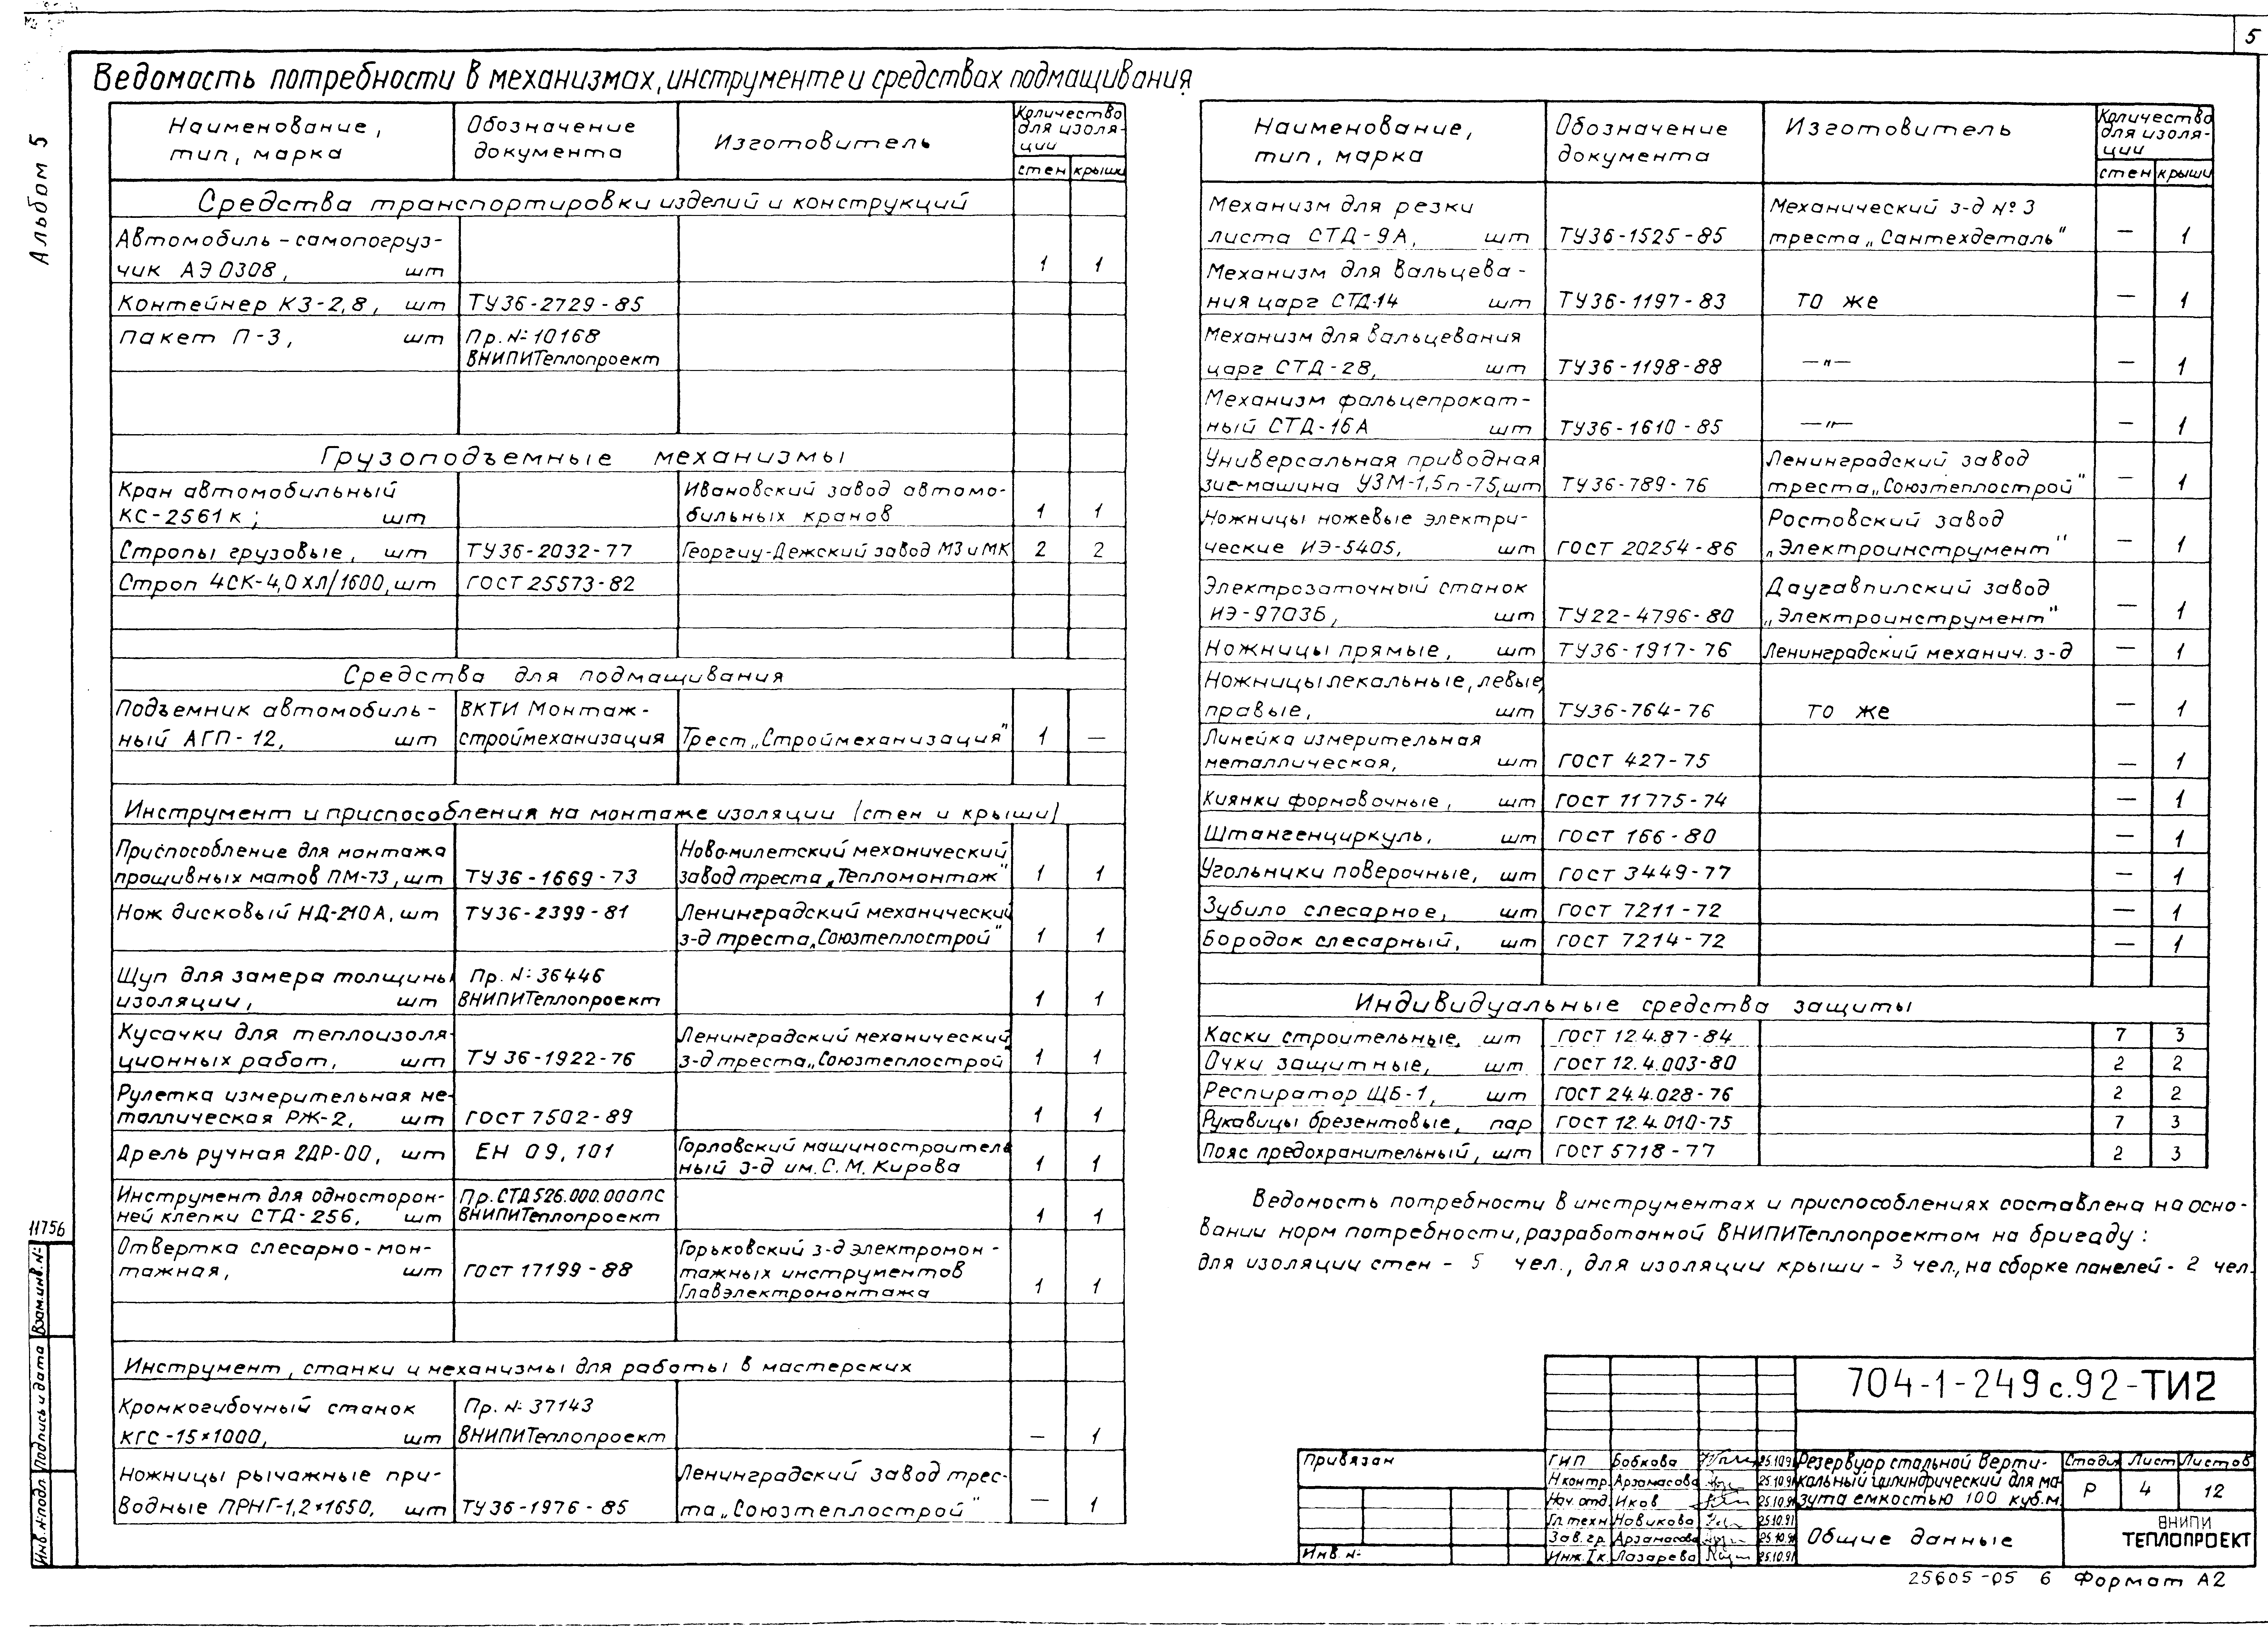 5
Альбом 5
Ведомость потребности в механизмах, инструменте и средствах подмащивания
Наименование, тип, марка
Обозначение документа
Изготовитель
Количество для изоляции
стен крыши
Средства транспортировки изделий и конструкций
Автомобиль-самопогруз-
чик АЭ0308, шт 1 1
Контейнер КЗ-2,8, шт ТУ36-2729-85
пакет П-3, шт Пр. №10168
ВНИПИТеплопроект
Грузоподъемные механизмы
Кран автомобильный Ивановский завод автомо-
КС-2561к; шт бильных кранов 1 1
Стропы грузовые, шт ТУ36-2032-77 Георгиу-Дежский завод МЗиМК 2 2
Строп 4СК-4,0ХЛ/1600, шт ГОСТ 25573-82
Средства для подмащивания
Подъемник автомобиль- ВКТИ Монтаж-
ный АГП-12, шт строймеханизация Трест „Строймеханизация" 1 —
Инструмент и приспособления на монтаже изоляции (стен и крыши)
Приспособление для монтажа Ново-милетский механический
прошивных матов ПМ-73, шт ТУ36-1669-73 завод треста „Тепломонтаж" 1 1
Нож дисковый НД-210А, шт ТУ36-2399-81 Ленинградский механический
з-д треста „Союзтеплострой" 1 1
Щуп для замера толщины Пр. № 36446
изоляции, шт ВНИПИТеплопроект 1 1
Кусачки для теплоизоля- Ленинградский механический
ционных работ, шт ТУ 36-1922-76 з-д треста „Союзтеплострой" 1 1
Рулетка измерительная ме-
таллическая РЖ-2, шт ГОСТ 7502-89 1 1
Дрель ручная 2ДР-00, шт ЕН 09,101 Горловский машиностроитель
ный з-д им. С.М. Кирова 1 1
Инструмент для односторон- Пр. СТД526.000.000ПС
ней клепки СТД-256, шт ВНИПИТеплопроект 1 1
Отвертка слесарно-мон- Горьковский з-д электромон-
тажная, шт ГОСТ 17199-88 тажных инструментов
Главэлектромонтажа 1 1
Инструмент, станки и механизмы для работы в мастерских
Кромкогибочный станок Пр. № 37143
КГС-15×1000, шт ВНИПИТеплопроект — 1
Ножницы рычажные при- Ленинградский завод трес-
водные ПРНГ-1,2×1650, шт ТУ36-1976-85 та „Союзтеплострой" — 1
Наименование, тип, марка
Обозначение документа
Изготовитель
Количество для изоляции
стен крыши
Механизм для резки Механический з-д №3
листа СТД-9А, шт ТУ36-1525-85 треста „Сантехдеталь" — 1
Механизм для вальцева-
ния царг СТД-14 шт ТУ36-1197-83 то же — 1
Механизм для вальцевания
царг СТД-28, шт ТУ36-1198-88 —"— — 1
Механизм фальцепрокат-
ный СТД-16А шт ТУ36-1610-85 —"— — 1
Универсальная приводная Ленинградский завод
зиг-машина УЗМ-1,5п-75, шт ТУ36-789-76 треста „Союзтеплострой" — 1
Ножницы ножевые электри- Ростовский завод
ческие ИЭ-5405, шт ГОСТ 20254-86 „Электроинструмент" — 1
Электрозаточный станок Даугавпилский завод
ИЭ-9703Б, шт ТУ22-4796-80 „Электроинструмент" — 1
Ножницы прямые, шт ТУ36-1917-76 Ленинградский механич. з-д — 1
Ножницы лекальные, левые,
правые, шт ТУ36-764-76 то же — 1
Линейка измерительная
металлическая, шт ГОСТ 427-75 — 1
Киянки формовочные, шт ГОСТ 11775-74 — 1
Штангенциркуль, шт ГОСТ 166-80 — 1
Угольники поверочные, шт ГОСТ 3449-77 — 1
Зубило слесарное, шт ГОСТ 7211-72 — 1
Бородок слесарный, шт ГОСТ 7214-72 — 1
Индивидуальные средства защиты
Каски строительные, шт ГОСТ 12.4.87-84 7 3
Очки защитные, шт ГОСТ 12.4.003-80 2 2
Респиратор ЩБ-1, шт ГОСТ 24.4.028-76 2 2
Рукавицы брезентовые, пар ГОСТ 12.4.010-75 7 3
Пояс предохранительный, шт ГОСТ 5718-77 2 3
Ведомость потребности в инструментах и приспособлениях составлена на осно-
вании норм потребности, разработанной ВНИПИТеплопроектом на бригаду:
для изоляции стен - 5 чел., для изоляции крыши - 3 чел., на сборке панелей - 2 чел.
11756
Взам. инв. №
Подпись и дата
Инв. № подл.
704-1-249с.92-ТИ2
Привязан
Инв. №
ГИП Бобкова 25.10.91
Н.контр. Арзамасова 25.10.91
Нач. отд. Иков 25.10.91
Гл. техн. Новикова 25.10.91
Зав. гр. Арзамасова 25.10.91
Инж. Iк. Лазарева 25.10.91
Резервуар стальной верти-
кальный цилиндрический для ма-
зута емкостью 100 куб.м.
Общие данные
Стадия Лист Листов
Р 4 12
ВНИПИ
ТЕПЛОПРОЕКТ
25605-05 6 Формат А2